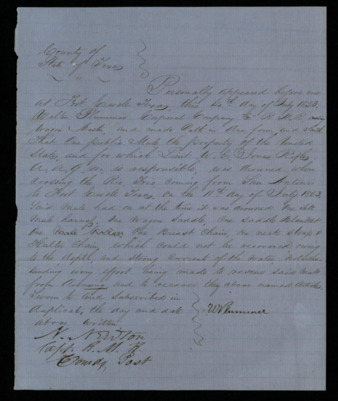 County of
State of Texas
Personally appeared before me
at Fort Lincoln Texas this 24th day of July 185
Walter Plummer Corporal Company
and made Oath in due form, and saith
That one public Mule the property of the United
States, and for which Lieut W. E. Jones Rifles
is responsible, was drowned when
crossing the Rio Frio coming from San Antonio
to Fort Texas, on the 18th day of July 185
Said Mule had on at the time it was drowned One sett
Mule harness, One Wagon Saddle, One Saddle Blanket
One Mule One Breast Chain, One neck strap &
Halter Chain, which could not be recovered owing
to the depth, and strong current of the water, notwith-
standing every effort being made to rescue said mule
from drowning and to recover the above named articles
Sworn to and Subscribed in
duplicate, the day and date
above written
W Plummer
N. Newton
Capt. R. M. R
Comdg Post